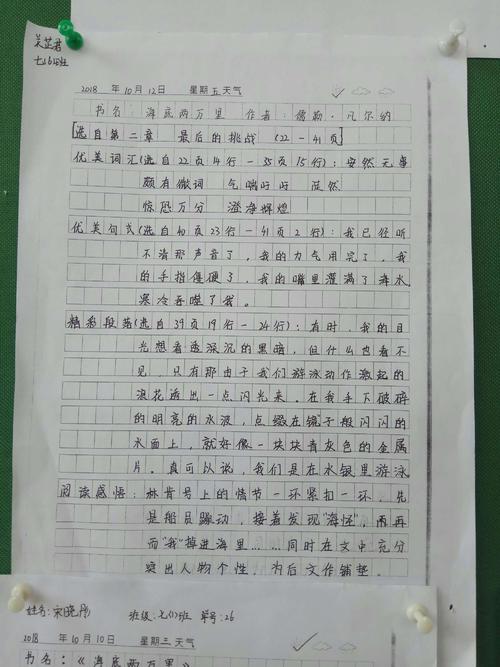 关芷君
七16班
2018 年 10 月 12 日 星期 五 天气
书名：海底两万里 作者：儒勒·凡尔纳
[选自第二章 最后的挑战 (22－41页)
优美词汇(选自22页14行－35页15行)：安然无事
颇有微词 气喘吁吁 茫然
惊恐万分 澄净辉煌
优美句式(选自40页23行－41页2行)：我已经听
不清那声音了，我的力气用完了，我
的手指僵硬了，我的嘴里灌满了海水
寒冷吞噬了我。
精彩段落(选自39页19行－24行)：有时，我的目
光想看透深沉的黑暗，但什么也看不
见，只有那由于我们游泳动作激起的
浪花透出一点闪光来。在我手下破碎
的明亮的水波，点缀在镜子般闪闪的
水面上，就好像一块块青灰色的金属
片。真可以说，我们是在水银里游泳
阅读感悟：林肯号上的情节一环紧扣一环，先
是船员躁动，接着发现“海怪”，而再
而“我”掉进海里……同时在文中充分
突出人物个性，为后文作铺垫。
姓名：宋晓彤 班级：七(1)班 学号：26
2018 年 10 月 10 日 星期 三 天气
书名：《海底两万里》